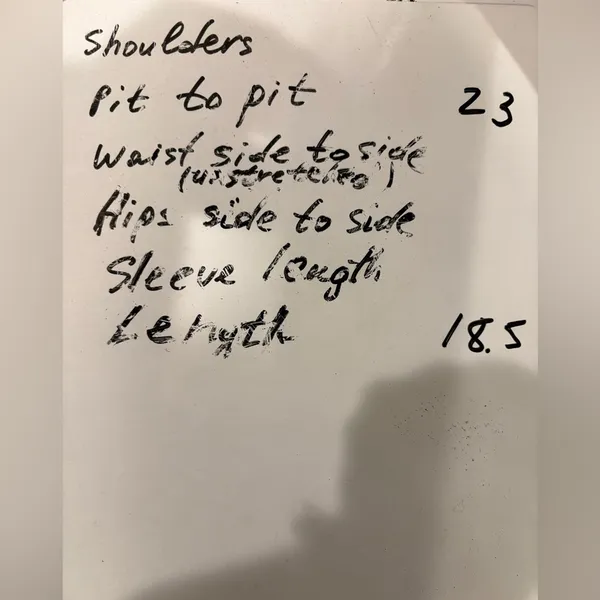 Shoulders
Pit to pit 23
Waist side to side
(unstretched)
Hips side to side
Sleeve length
Length 18.5